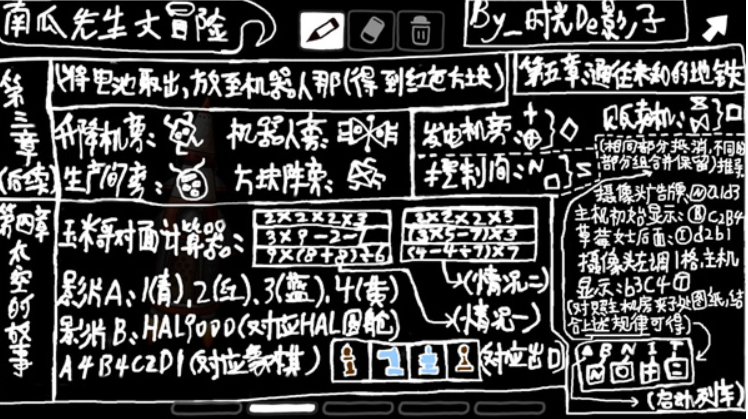 南瓜先生大冒险
By_时光De影子
第三章(后续)
(将电池取出,放至机器人那(得到红色方块)
升降机旁:
机器人旁:
生产间旁:
方块阵旁:
第五章:通往未知的地铁
发电机旁:
贩卖机:
控制间:
(相同部分抵消,不同的
部分组合并保留)推导
摄像头广告牌:Ⓝa1d3
主机初始显示:ⒷC2B4
草莓女士后面:Ⓘd2b1
摄像头左调1格,主机
显示:b3C4Ⓣ
(对照主机房夹子处图纸,结
合上述规律可得)
A B N I T
(启动列车)
第四章太空的故事
玉米哥对面计算器:
2×2×2×3
3×9-2-7
9×(8+8)÷6
2×2×2×3
(3×5-7)×3
(4-4÷7)×7
(情况二)
(情况一)
影片A:1(青),2(红),3(蓝),4(黄)
影片B:HAL9000(对应HAL圆舱)
A4B4C2D1(对应象棋)
(对应出口)